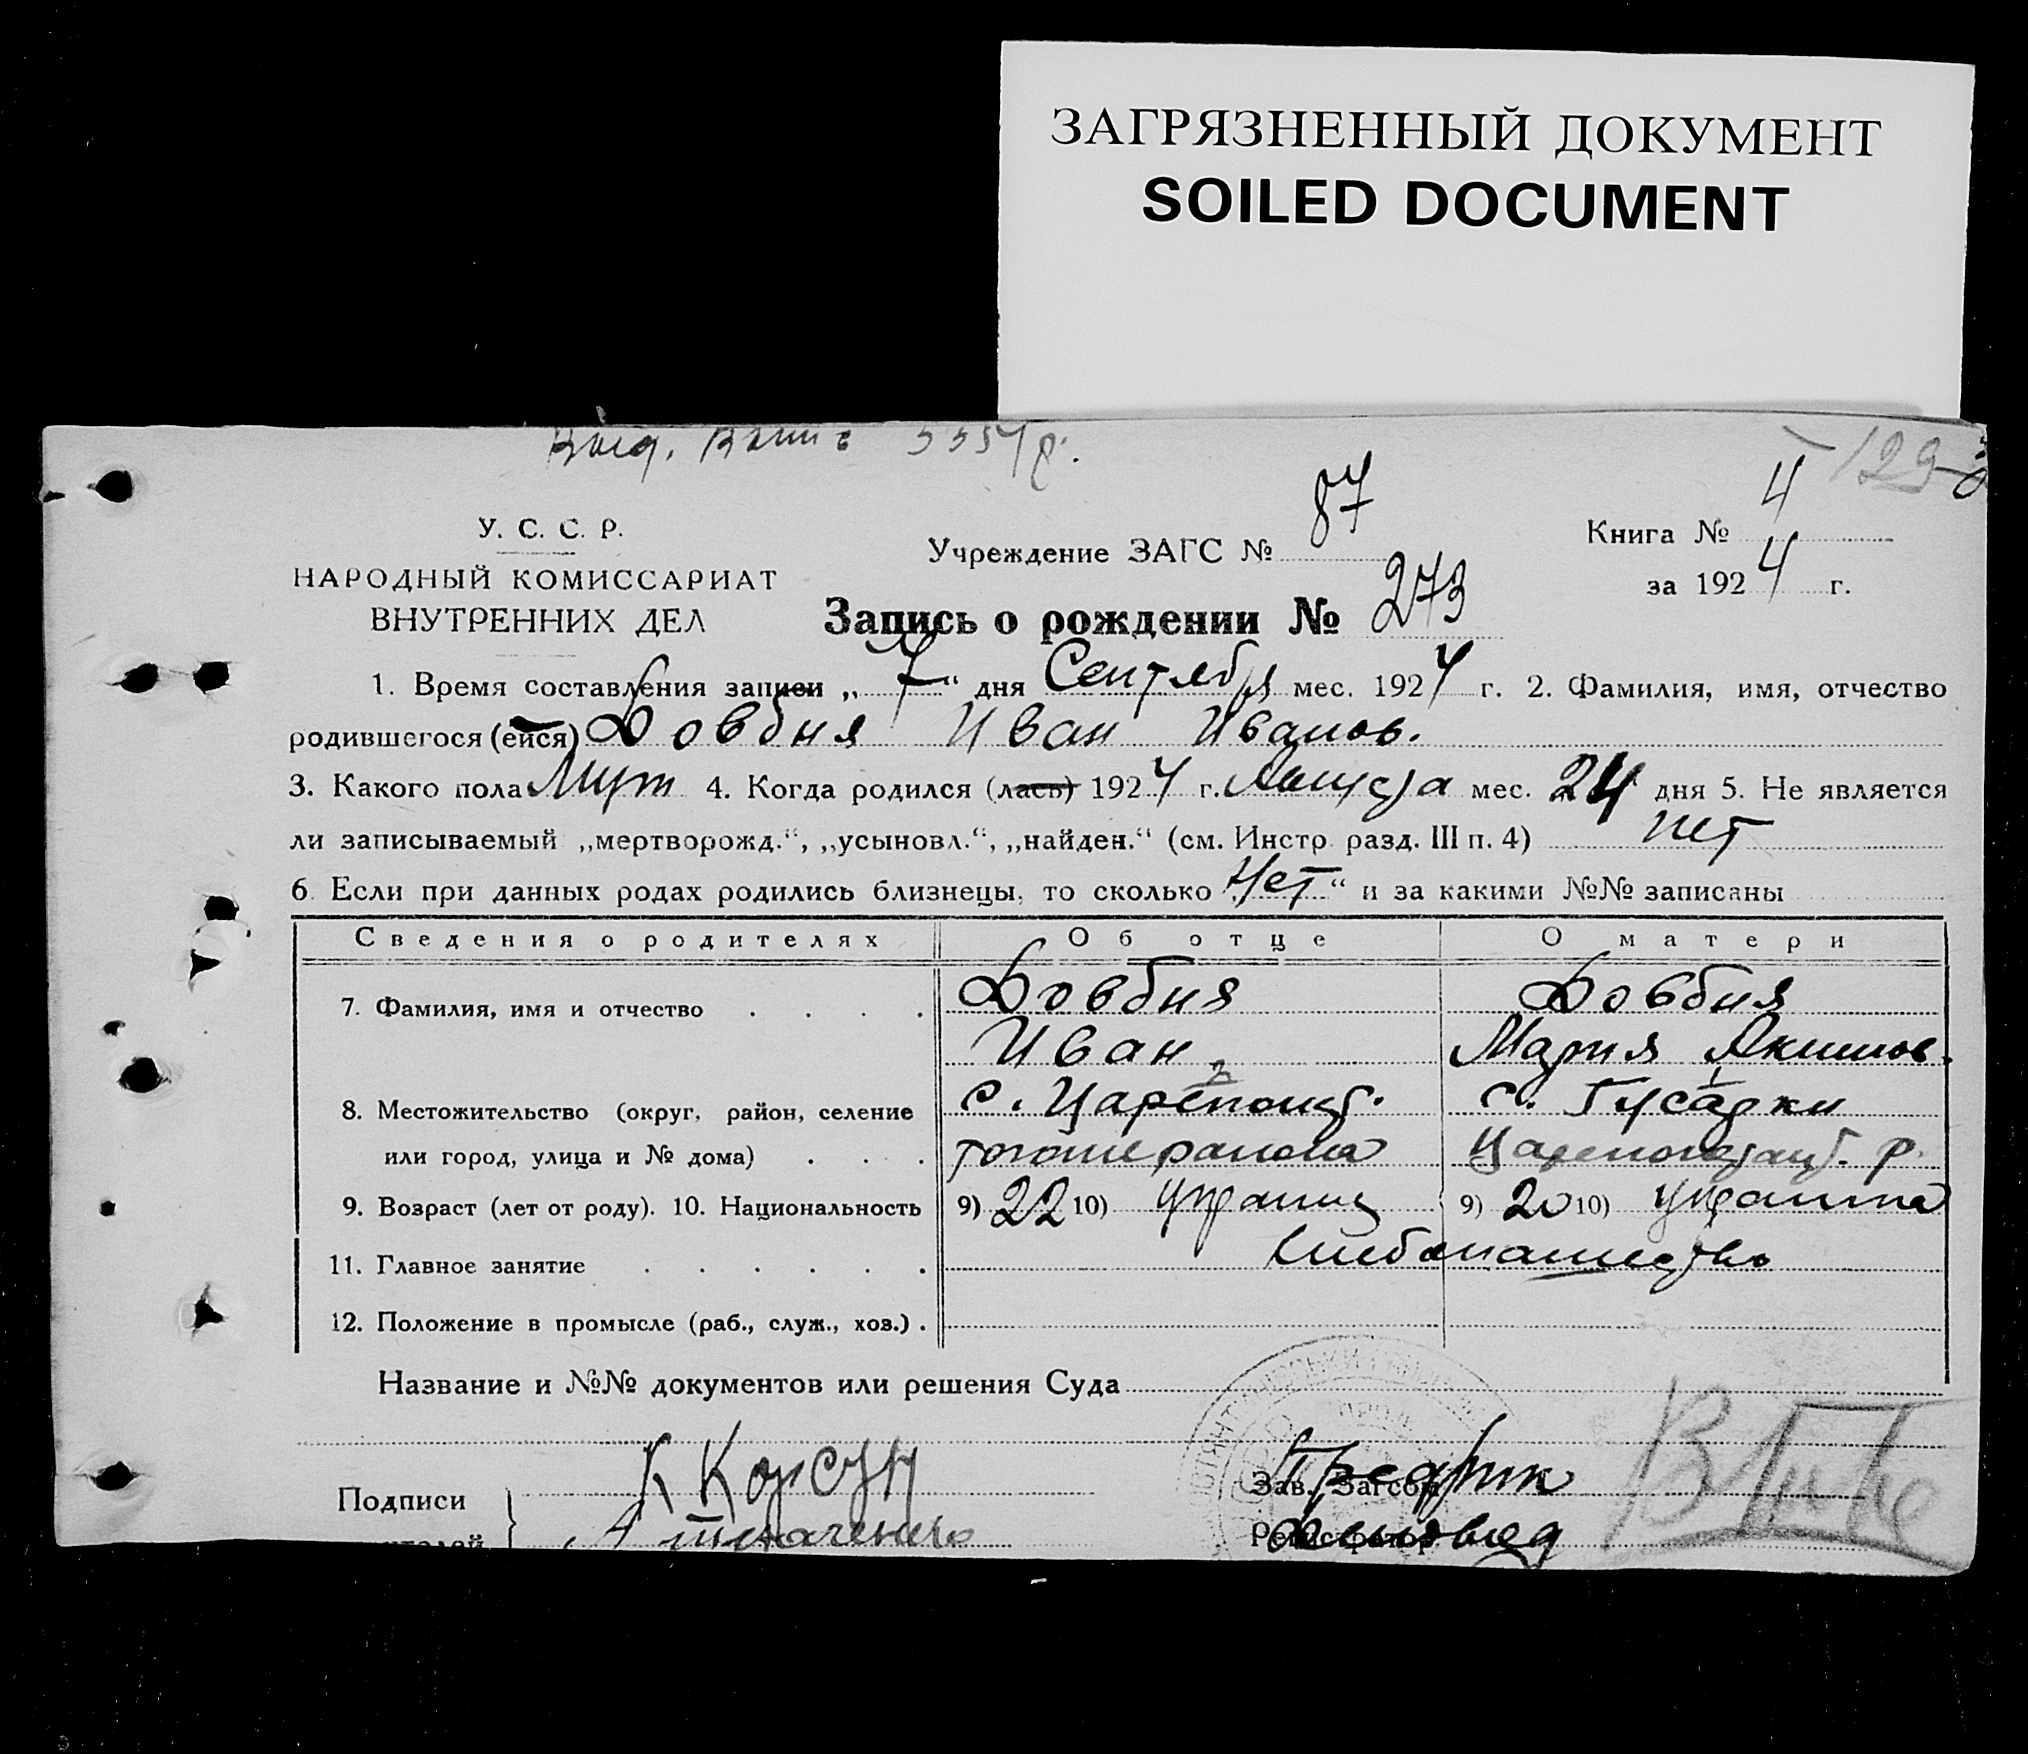 ЗАГРЯЗНЕННЫЙ ДОКУМЕНТ
SOILED DOCUMENT
129
У. С. С. Р.
НАРОДНЫЙ КОМИССАРИАТ
ВНУТРЕННИХ ДЕЛ
Учреждение ЗАГС № 87
Книга № 4
за 1924 г.
Запись о рождении № 273
1. Время составления записи „7“ дня Сентября мес. 1924 г. 2. Фамилия, имя, отчество
родившегося (ейся) Довбня Иван Иванов.
3. Какого пола Муж 4. Когда родился (лась) 1924 г. Августа мес. 24 дня 5. Не является
ли записываемый „мертворожд.“, „усыновл.“, „найден.“ (см. Инстр. разд. III п. 4) нет
6. Если при данных родах родились близнецы, то сколько „Нет“ и за какими №№ записаны
Сведения о родителях Об отце О матери
7. Фамилия, имя и отчество Довбня Довбня
Иван Мария Якимов.
8. Местожительство (округ, район, селение с. Гусарки
или город, улица и № дома)
9. Возраст (лет от роду). 10. Национальность 9) 22 10) украинц 9) 20 10) украинка
11. Главное занятие Хлебопашество
12. Положение в промысле (раб., служ., хоз.)
Название и №№ документов или решения Суда
Подписи К Корсун
Зав. Загсом
Регистратор